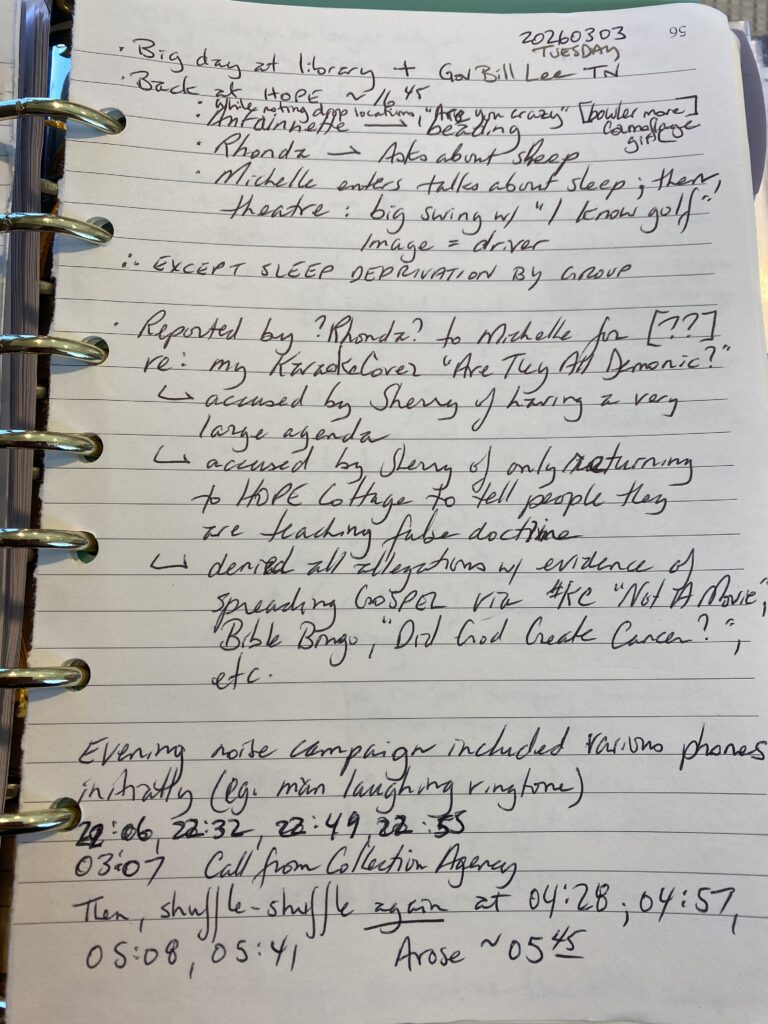 20260303 56
TUESDAY
· Big day at library + Gov Bill Lee TN
· Back at HOPE ~ 16 45
· while noting drop locations, "Are you crazy" [bowler more]
· Antainnette → beading girl
· Rhonda → Asks about sleep
· Michelle enters talks about sleep; then,
theatre: big swing w/ "I know golf"
Image = driver
∴ EXCEPT SLEEP DEPRIVATION BY GROUP
· Reported by ?Rhonda? to Michelle for [??]
re: my KaraokeCover "Are They All Demonic?"
↳ accused by Sherry of having a very
large agenda
↳ accused by Sherry of only returning
to HOPE Cottage to tell people they
are teaching false doctrine
↳ denied all allegations w/ evidence of
spreading GOSPEL via #KC "Not A Movie",
"Bible Bingo, "Did God Create Cancer?",
etc.
Evening noise campaign included various phones
initially (eg. man laughing ringtone)
22:06, 22:32, 22:49, 22:55
03:07 Call from Collection Agency
Then, shuffle-shuffle again at 04:28; 04:57,
05:08, 05:41 Arose ~05 45